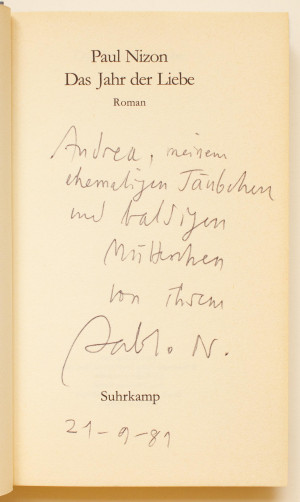 Paul Nizon
Das Jahr der Liebe
Roman
Andrea, meinem
ehemaligen Täubchen
und baldigen
Mütterchen
von ihrem
Pablo N.
Suhrkamp
21-9-81